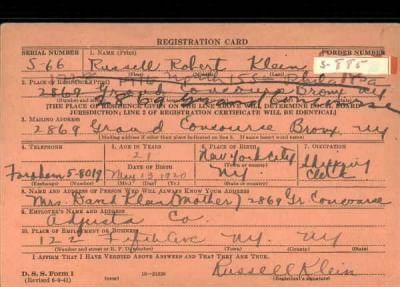 REGISTRATION CARD
SERIAL NUMBER 1. NAME (Print) ORDER NUMBER
S-66 Russell Robert Klein S-895
(First) (Middle) (Last)
2. PLACE OF RESIDENCE (Print)
2869 Grand Concourse Bronx NY
[THE PLACE OF RESIDENCE GIVEN ON THE LINE ABOVE WILL DETERMINE LOCAL BOARD
JURISDICTION; LINE 2 OF REGISTRATION CERTIFICATE WILL BE IDENTICAL]
3. MAILING ADDRESS
2869 Grand Concourse Bronx NY
[Mailing address if other than place indicated on line 2. If same insert word same]
4. TELEPHONE 5. AGE IN YEARS 6. PLACE OF BIRTH 7. OCCUPATION
21 New York City Shipping
DATE OF BIRTH
5-8019 May 13 1920 NY. Clerk
(Exchange) (Number) (Mo.) (Day) (Yr.)
8. NAME AND ADDRESS OF PERSON WHO WILL ALWAYS KNOW YOUR ADDRESS
Mrs. David Klein (Mother) 2869 Gr. Concourse
9. EMPLOYER'S NAME AND ADDRESS
Co.
10. PLACE OF EMPLOYMENT OR BUSINESS
122 Fifth Ave NY. NY
(Number and street or R. F. D. number) (Town) (County) (State)
I AFFIRM THAT I HAVE VERIFIED ABOVE ANSWERS AND THAT THEY ARE TRUE.
D. S. S. Form 1 Russell Klein
(Revised 6-9-41) (Registrant's signature)